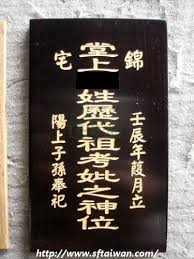 錦宅
壬辰年葭月立
堂上姓歷代祖考妣之神位
陽上子孫奉祀
http://www.sftaiwan.com/